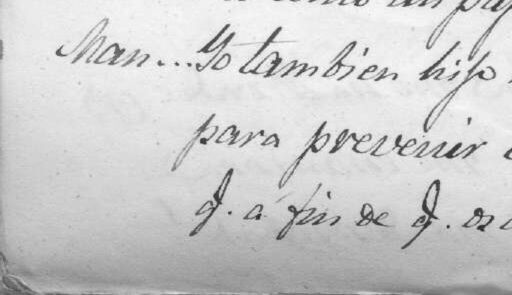 como un
Man... Yo tambien hise
para prevenir
q. á fin de q. os